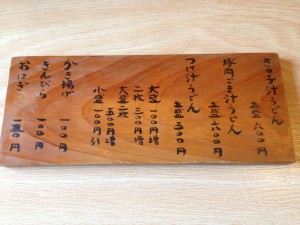 きの子汁うどん
並盛 六〇〇円
豚肉ごま汁うどん
並盛 六〇〇円
つけ汁うどん
並盛 五〇〇円
大盛 一〇〇円増
二枚 三〇〇円増
大盛二枚
五〇〇円増
小盛 一〇〇円引
かき揚げ 一〇〇円
きんぴら 一〇〇円
おはぎ 一五〇円